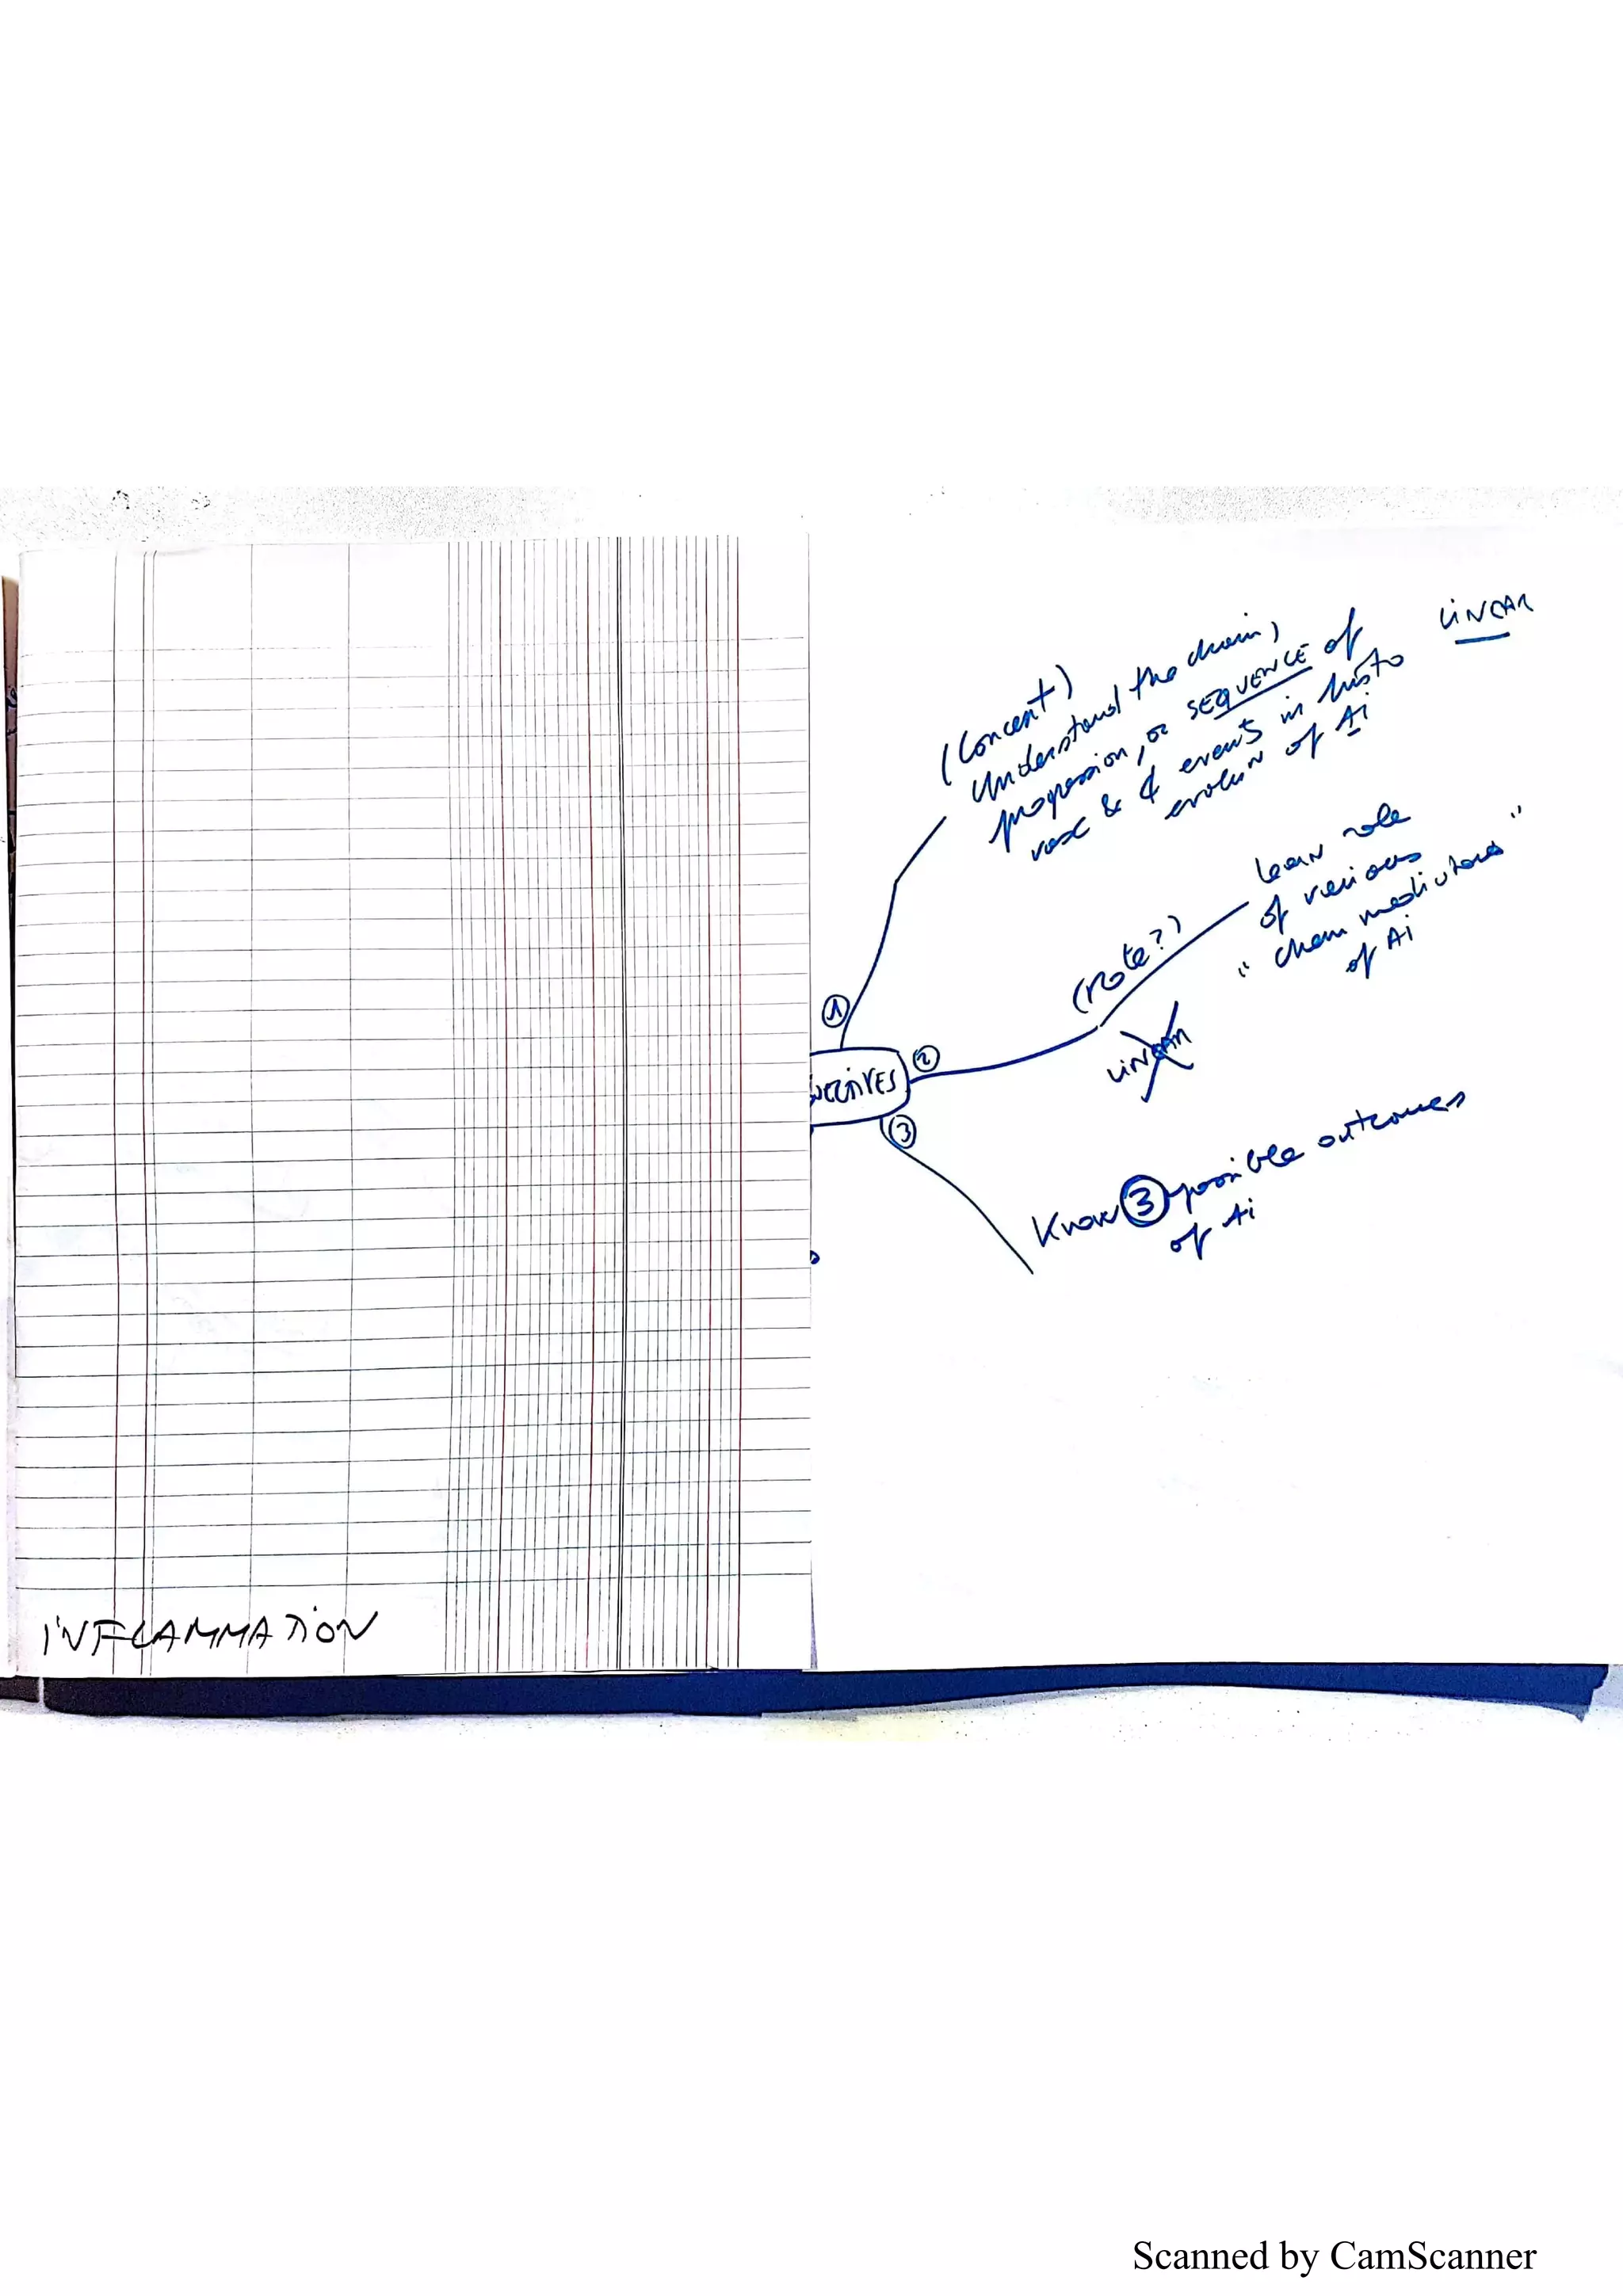 LINEAR
(Concept)
Understand the chain,
progression, or SEQUENCE of
vasc & ¢ events in histo
evolun of Ai
①
(Rote?)
learn role
of various
" chem mediators "
of Ai
LINEAR
②
JECTIVES
③
Know ③ possible outcomes
of Ai
INFLAMMATION
Scanned by CamScanner